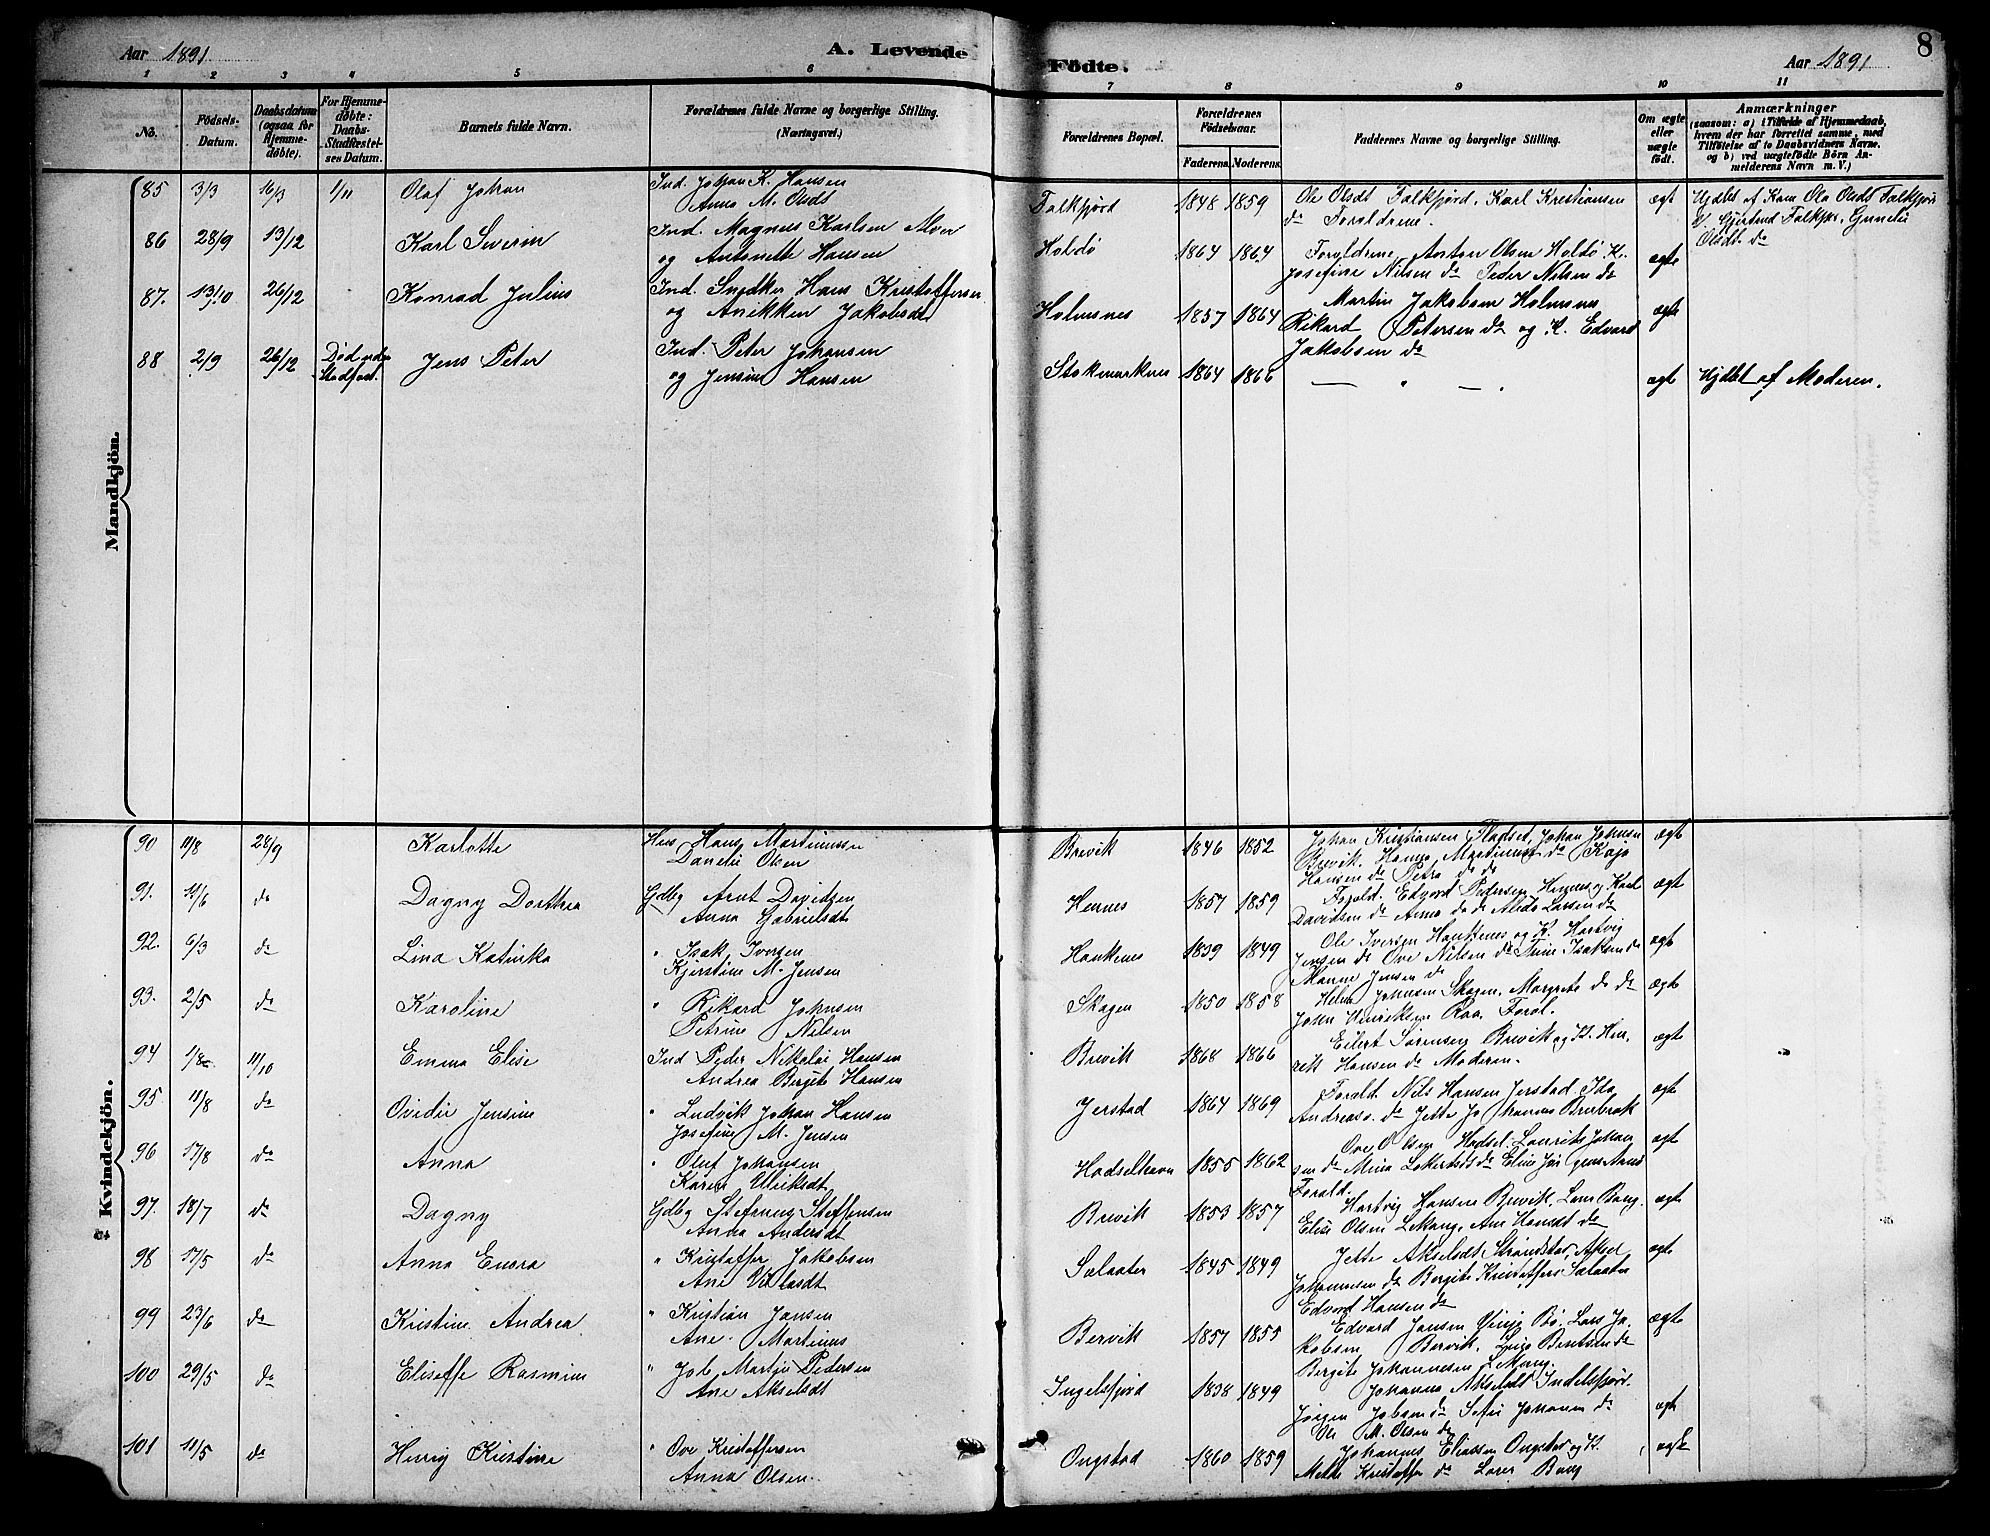 Aar 1891
A. Levende
Födte.
Aar 1891
8
1 2 3 4 5 6 7 8 9 10 11
No.
Födsels-
Datum.
Daabsdatum
(ogsaa for
Hjemme-
döbte).
For Hjemme-
döbte:
Daabs-
Stadfæstel-
ses Datum.
Barnets fulde Navn.
Forældrenes fulde Navne og borgerlige Stilling.
(Næringsvei.)
Forældrenes Bopæl.
Forældrenes
Födselsaar.
Faderens. Moderens.
Faddernes Navne og borgerlige Stilling.
Om ægte
eller
uægte
födt.
Anmærkninger
(saasom: a) i Tilfælde af Hjemmedaab,
hvem der har forrettet samme, med
Tilföielse af to Daabsvidners Navne.
og b) ved uægtefödte Börn An-
melderens Navn m. V.)
Mandkjön.
85 3/3 16/3 1/11 Olaf Johan
Ind. Johan K. Hansen
Anna M. Olsdt
Falkfjord 1848 1859
Ole Olsdt Falkfjord, Karl Kristiansen
do Forældrene.
ægt
86 28/9 13/12 Karl Severin
Ind. Magnus Karlsen
og Antonette Hansen
Holdö 1864 1864
Forældrene, Anton Olsen Holdö K.
Josefine Nilsen do Peder Nilsen do
ægte
87. 13/10 26/12 Konrad Julius
Ind. Snedker Hans Kristoffersen
og Anikken Jakobsdt
Holmsnes 1857 1864
Martin Jakobsen Holmsnes
Rikard Petersen do og K. Edvard
Jakobsen do
ægte
88 2/9 26/12 Død
Jens Peter
Ind. Peter Johansen
og Jensine Hansen
Stokmarknes 1864 1866
ægt
Hjdbt af Moderen.
Kvindekjön.
90 11/8 28/9 Karlotte
Hans Martinussen
Olsen
Brevik 1846 1852
Johan Kristiansen Johan Johnsen
Brevik,
Hansen do Petra do do
ægte
91. 11/6 do Dagny Dorthea
Gdbg Arnt Davidsen
Anna Gabrielsdt
Hennes 1857 1859
Foræld. Edvard Pedersen Hennes og Karl
Davidsen do Anna do do Larsen do
ægt
92. 6/3 do Lina Katinka
" Isak Iversen
Kjerstine M. Jensen
Haukenes 1839 1849
Ole Iversen og K. Hartvig
Jensen do Ove Nilsen do
Jensen do
ægt
93. 2/5 do Karoline
" Rikard Johnsen
Petrine Nilsen
Skagen 1850 1858
Johnsen Skagen, Margrete do do
John Henriksen Foræl.
ægte
94 11/10 Emma Elise
Ind Peder Nikolai Hansen
Andrea Bergite Hansen
Brevik 1868 1866
Eilert Sörensen Brevik og K. Hen-
rik Hansen do Moderen.
ægte
95 11/8 do Ovidie Jensine
" Ludvik Johan Hansen
Josefine M. Jensen
Jerstad 1864 1869
Foræld. Nils Hansen Jerstad Ida
Andreass. do Jette Johannes
ægte
96 17/8 do Anna
" Oluf Johansen
Karen Ulriksdt
Hadselhavn 1855 1862
Ove Olsen Hadsel. Laurits Johan
sen do
Foræld.
ægt
97. 18/7 do Dagny
Gdbg Steffensen
Anna Andersdt
Brevik 1853 1857
Hartvig Hansen Brevik, Bang.
Elise Olsen Lekang,
ægte
98 17/5 do Anna
" Kristoffer Jakobsen
Ane
1845 1849
Jette Akselsdt Aksel
Johannesen do Bergite
Edvard Hansen do
ægte
99 23/6 do Kristine Andrea
" Kristian Jansen
Ane Martinus
Bervik 1857 1855
Edvard Jansen Bö, Lars Ja-
kobsen Bervik, Bentsen do
Bergite Johannesen Lekang.
ægte
100 29/5 do Eliseffe Rasmine
" Job Martin Pedersen
Ane Akselsdt
Ingelsfjord 1838 1849
Johanna Akselsdt Indelsfjord.
Jörgen Jobsen do
M. Olsen do
ægt
101 11/5 do Kristine
" Ove Kristoffersen
Anna Olsen
Ongstad 1860 1859
Johannes Eliassen Ongstad og K.
do Bang
ægt